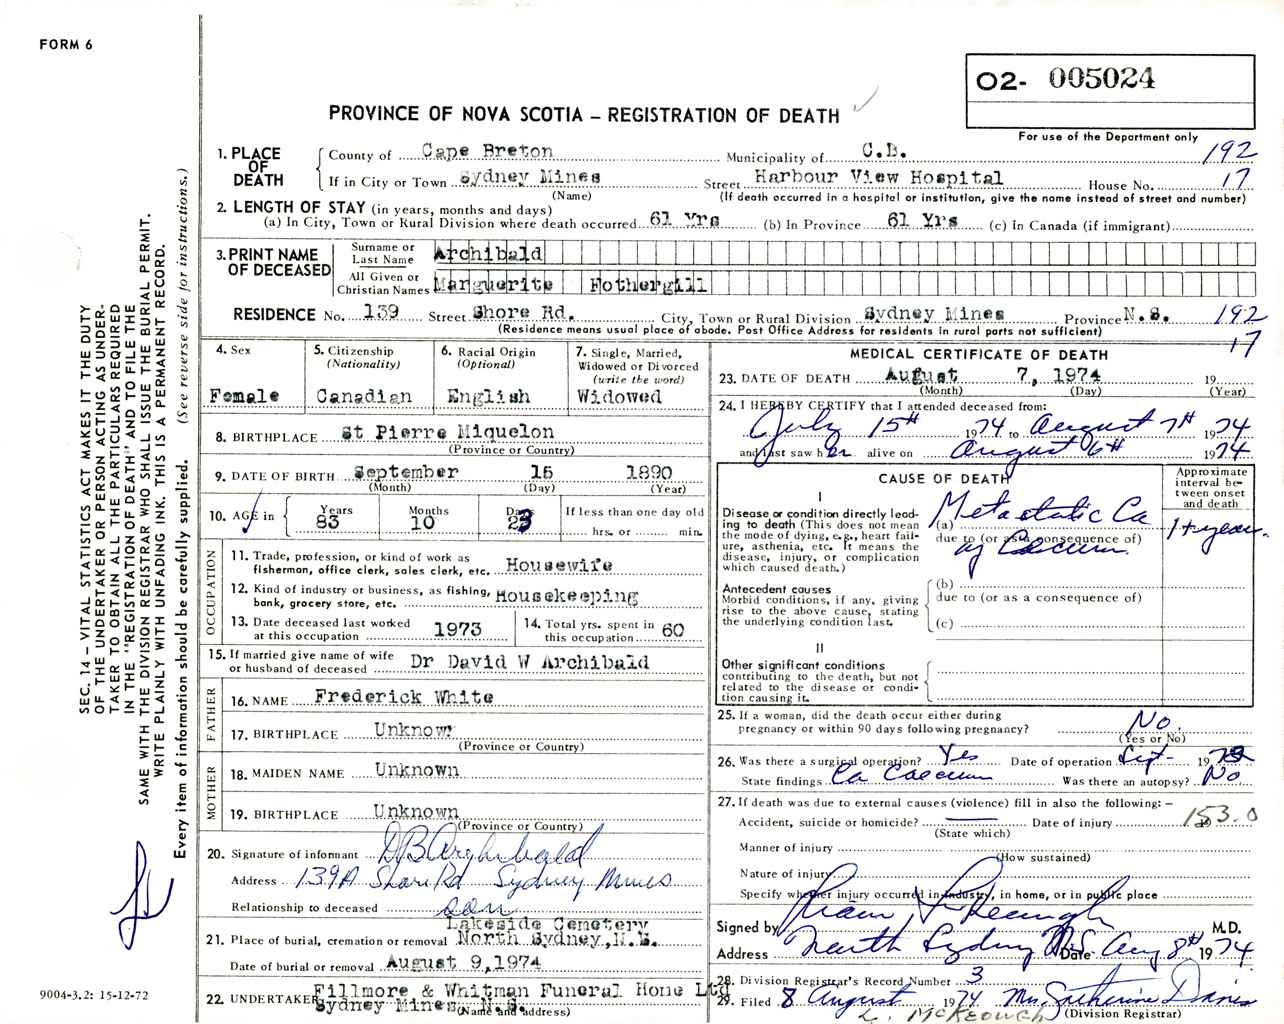 FORM 6
O2- 005024
PROVINCE OF NOVA SCOTIA – REGISTRATION OF DEATH
For use of the Department only
1. PLACE OF DEATH
County of Cape Breton Municipality of C.B. 192
If in City or Town Sydney Mines Street Harbour View Hospital House No. 17
(Name) (If death occurred in a hospital or institution, give the name instead of street and number)
2. LENGTH OF STAY (in years, months and days)
(a) In City, Town or Rural Division where death occurred 61 Yrs (b) In Province 61 Yrs (c) In Canada (if immigrant)
3. PRINT NAME OF DECEASED
Surname or Last Name Archibald
All Given or Christian Names Marguerite Fothergill
RESIDENCE No. 139 Street Shore Rd. City, Town or Rural Division Sydney Mines Province N.S. 192
(Residence means usual place of abode. Post Office Address for residents in rural parts not sufficient) 17
4. Sex
Female
5. Citizenship
(Nationality)
Canadian
6. Racial Origin
(Optional)
English
7. Single, Married,
Widowed or Divorced
(write the word)
Widowed
8. BIRTHPLACE St Pierre Miquelon
(Province or Country)
9. DATE OF BIRTH September 15 1890
(Month) (Day) (Year)
10. AGE in
Years Months Days If less than one day old
83 10 23 hrs. or min.
OCCUPATION
11. Trade, profession, or kind of work as
fisherman, office clerk, sales clerk, etc. Housewife
12. Kind of industry or business, as fishing,
bank, grocery store, etc. Housekeeping
13. Date deceased last worked
at this occupation 1973
14. Total yrs. spent in
this occupation 60
15. If married give name of wife
or husband of deceased Dr David W Archibald
FATHER
16. NAME Frederick White
17. BIRTHPLACE Unknown
(Province or Country)
MOTHER
18. MAIDEN NAME Unknown
19. BIRTHPLACE Unknown
(Province or Country)
20. Signature of informant DB Archibald
Address 139A Shore Rd Sydney Mines
Relationship to deceased son
Lakeside Cemetery
21. Place of burial, cremation or removal North Sydney, N.S.
Date of burial or removal August 9, 1974
22. UNDERTAKER Fillmore & Whitman Funeral Home Ltd
Sydney Mines N.S.
(Name and address)
MEDICAL CERTIFICATE OF DEATH
23. DATE OF DEATH August 7, 1974 19
(Month) (Day) (Year)
24. I HEREBY CERTIFY that I attended deceased from:
July 15th 1974 to August 7th 1974
and last saw her alive on August 6th 1974
CAUSE OF DEATH
Approximate
interval be-
tween onset
and death
I
Disease or condition directly lead-
ing to death (This does not mean
the mode of dying, e.g., heart fail-
ure, asthenia, etc. It means the
disease, injury, or complication
which caused death.)
(a) Metastatic Ca 1+ year.
due to (or as a consequence of)
of Caecum.
Antecedent causes
Morbid conditions, if any, giving
rise to the above cause, stating
the underlying condition last.
(b)
due to (or as a consequence of)
(c)
II
Other significant conditions
contributing to the death, but not
related to the disease or condi-
tion causing it.
25. If a woman, did the death occur either during
pregnancy or within 90 days following pregnancy? No.
(Yes or No)
26. Was there a surgical operation? Yes Date of operation Sept- 1973
State findings Ca Caecum Was there an autopsy? No
27. If death was due to external causes (violence) fill in also the following: –
Accident, suicide or homicide? — Date of injury 153.0
(State which)
Manner of injury
(How sustained)
Nature of injury
Specify whether injury occurred in industry, in home, or in public place
Signed by M.D.
Address North Sydney N.S. Date Aug 8th 1974
28. Division Registrar's Record Number 3
29. Filed 8 August 1974 Mrs. Catherine Davis
L. McKeough (Division Registrar)
SEC. 14 – VITAL STATISTICS ACT MAKES IT THE DUTY
OF THE UNDERTAKER OR PERSON ACTING AS UNDER-
TAKER TO OBTAIN ALL THE PARTICULARS REQUIRED
IN THE "REGISTRATION OF DEATH" AND TO FILE THE
SAME WITH THE DIVISION REGISTRAR WHO SHALL ISSUE THE BURIAL PERMIT.
WRITE PLAINLY WITH UNFADING INK. THIS IS A PERMANENT RECORD.
Every item of information should be carefully supplied. (See reverse side for instructions.)
9004-3.2: 15-12-72